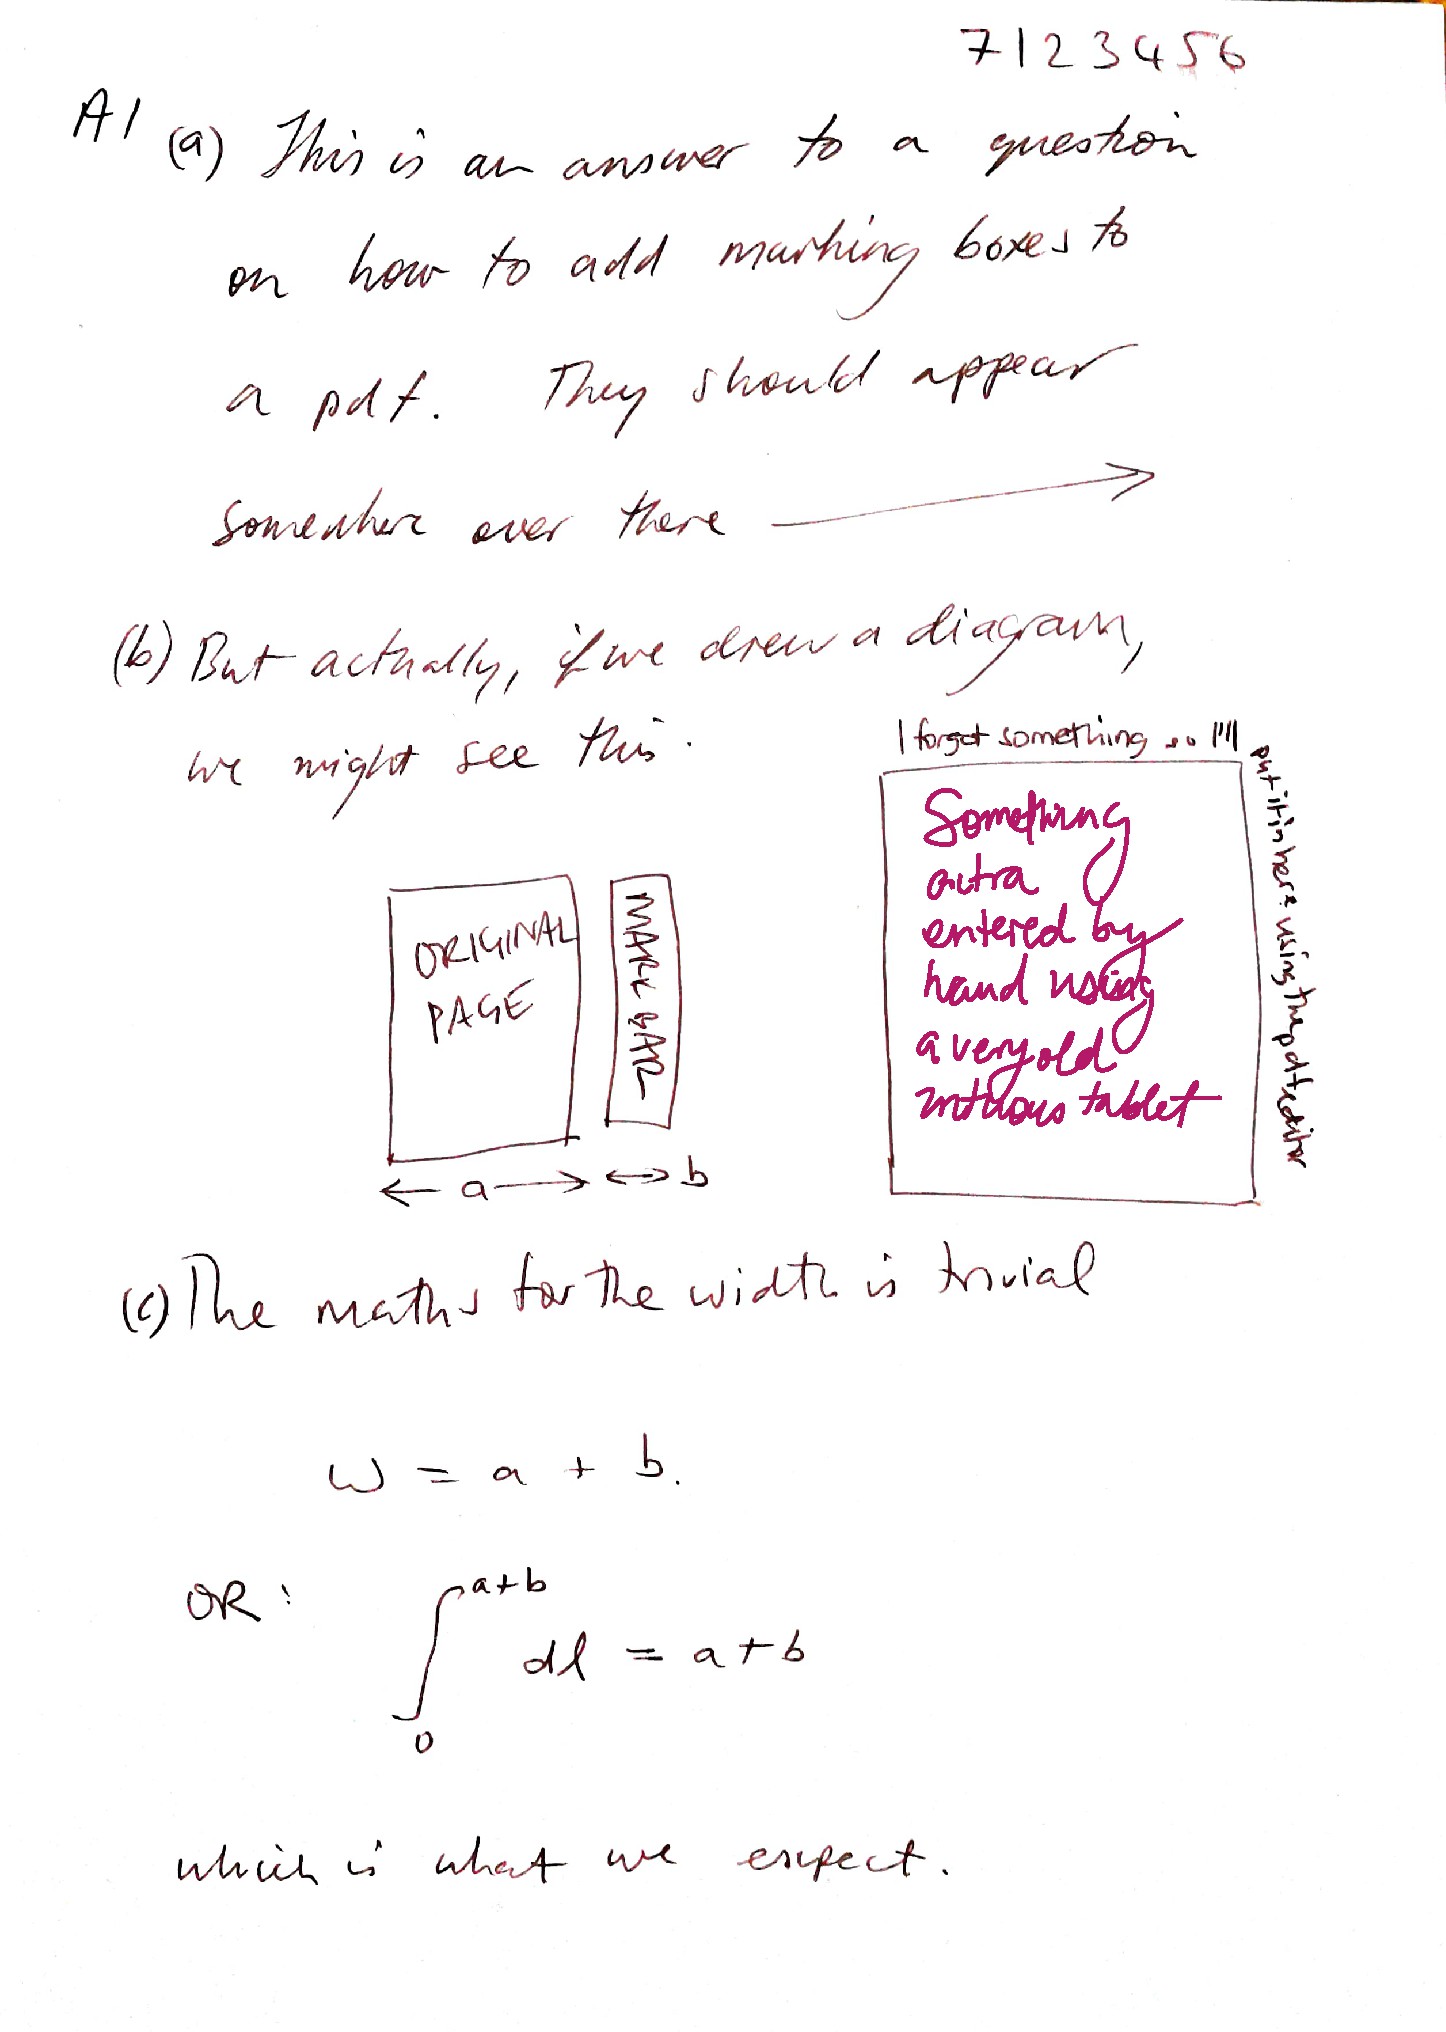 7123456
A1 (a) This is an answer to a question
on how to add marking boxes to
a pdf. They should appear
somewhere over there →
(b) But actually, if we drew a diagram,
we might see this.
ORIGINAL
PAGE
MARK BAR
← a → ↔ b
I forgot something so I'll
put it in here using the pdf editor
Something
extra
entered by
hand using
a very old
tablet
(c) The maths for the width is trivial
w = a + b.
OR: ∫₀^{a+b} dl = a + b
which is what we expect.